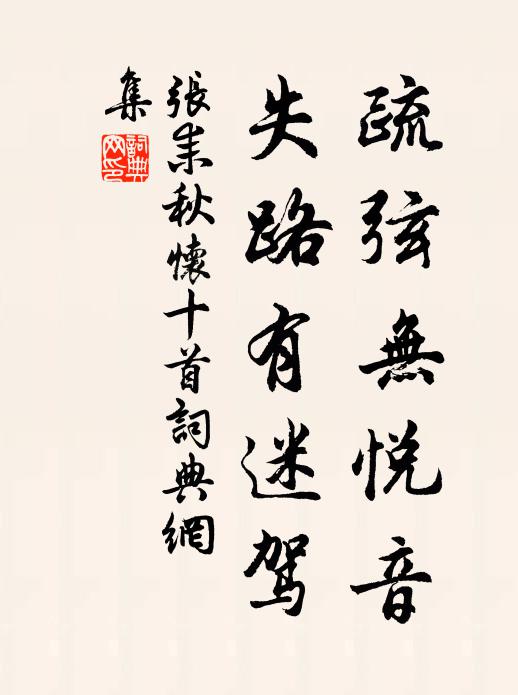 疏弦無悦音
失路有迷駕
張耒秋懷十首詞典網
集
詞典網印